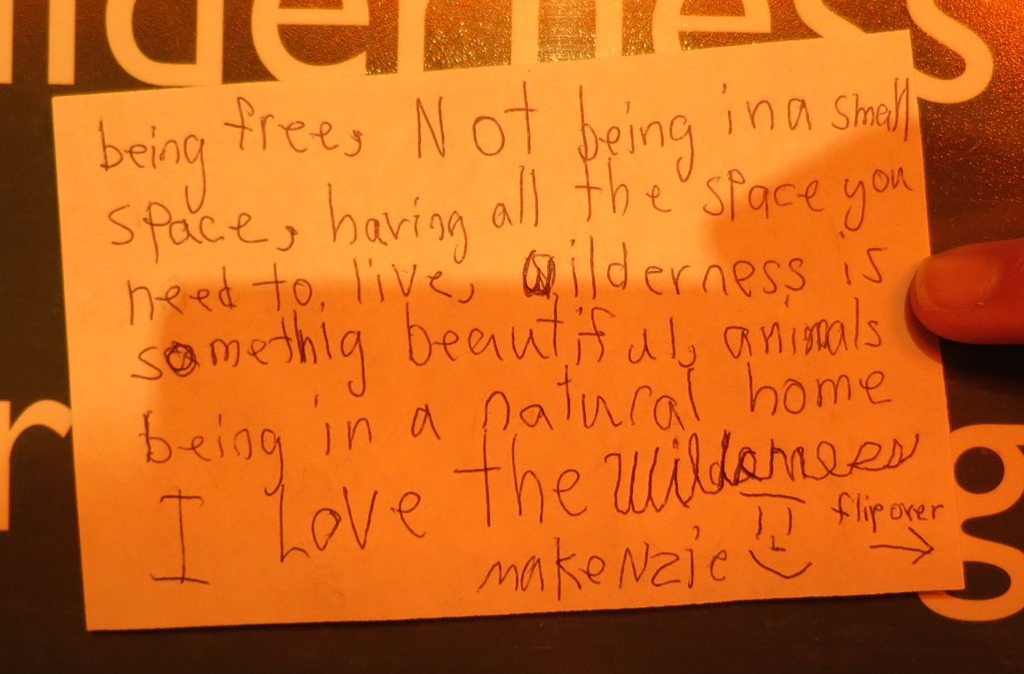 ilderness
being free, Not being in a small
space, having all the space you
need to live, wilderness is
somethig beautiful, animals
being in a natural home
I Love the Wilderness
flip over
makeNzie
r
g